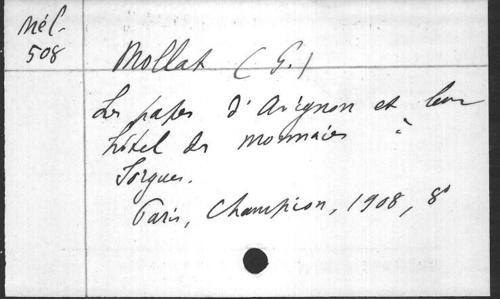 Mél.
508
Mollat (G.)
Les papes d'Avignon et leur
hôtel des monnaies à
Sorgues.
Paris, Champion, 1908, 8°